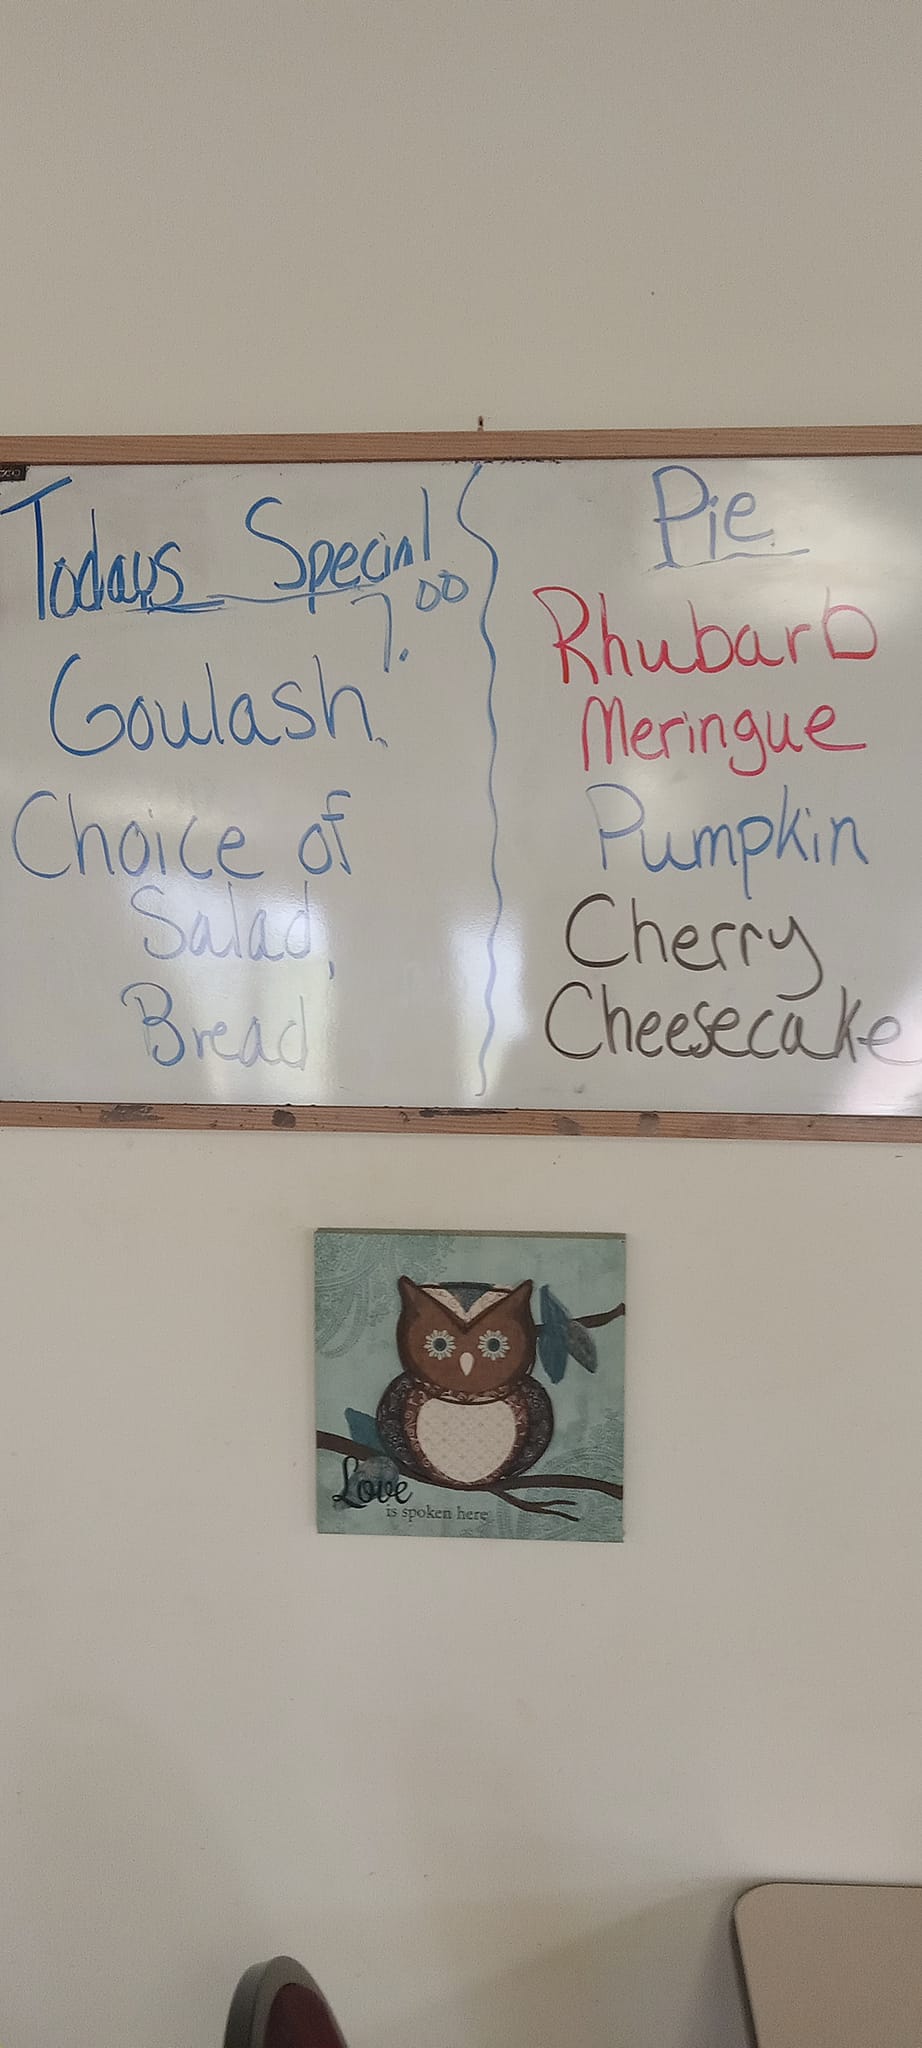 Todays Special
7.00
Goulash
Choice of
Salad,
Bread
Pie
Rhubarb
Meringue
Pumpkin
Cherry
Cheesecake
Love
is spoken here